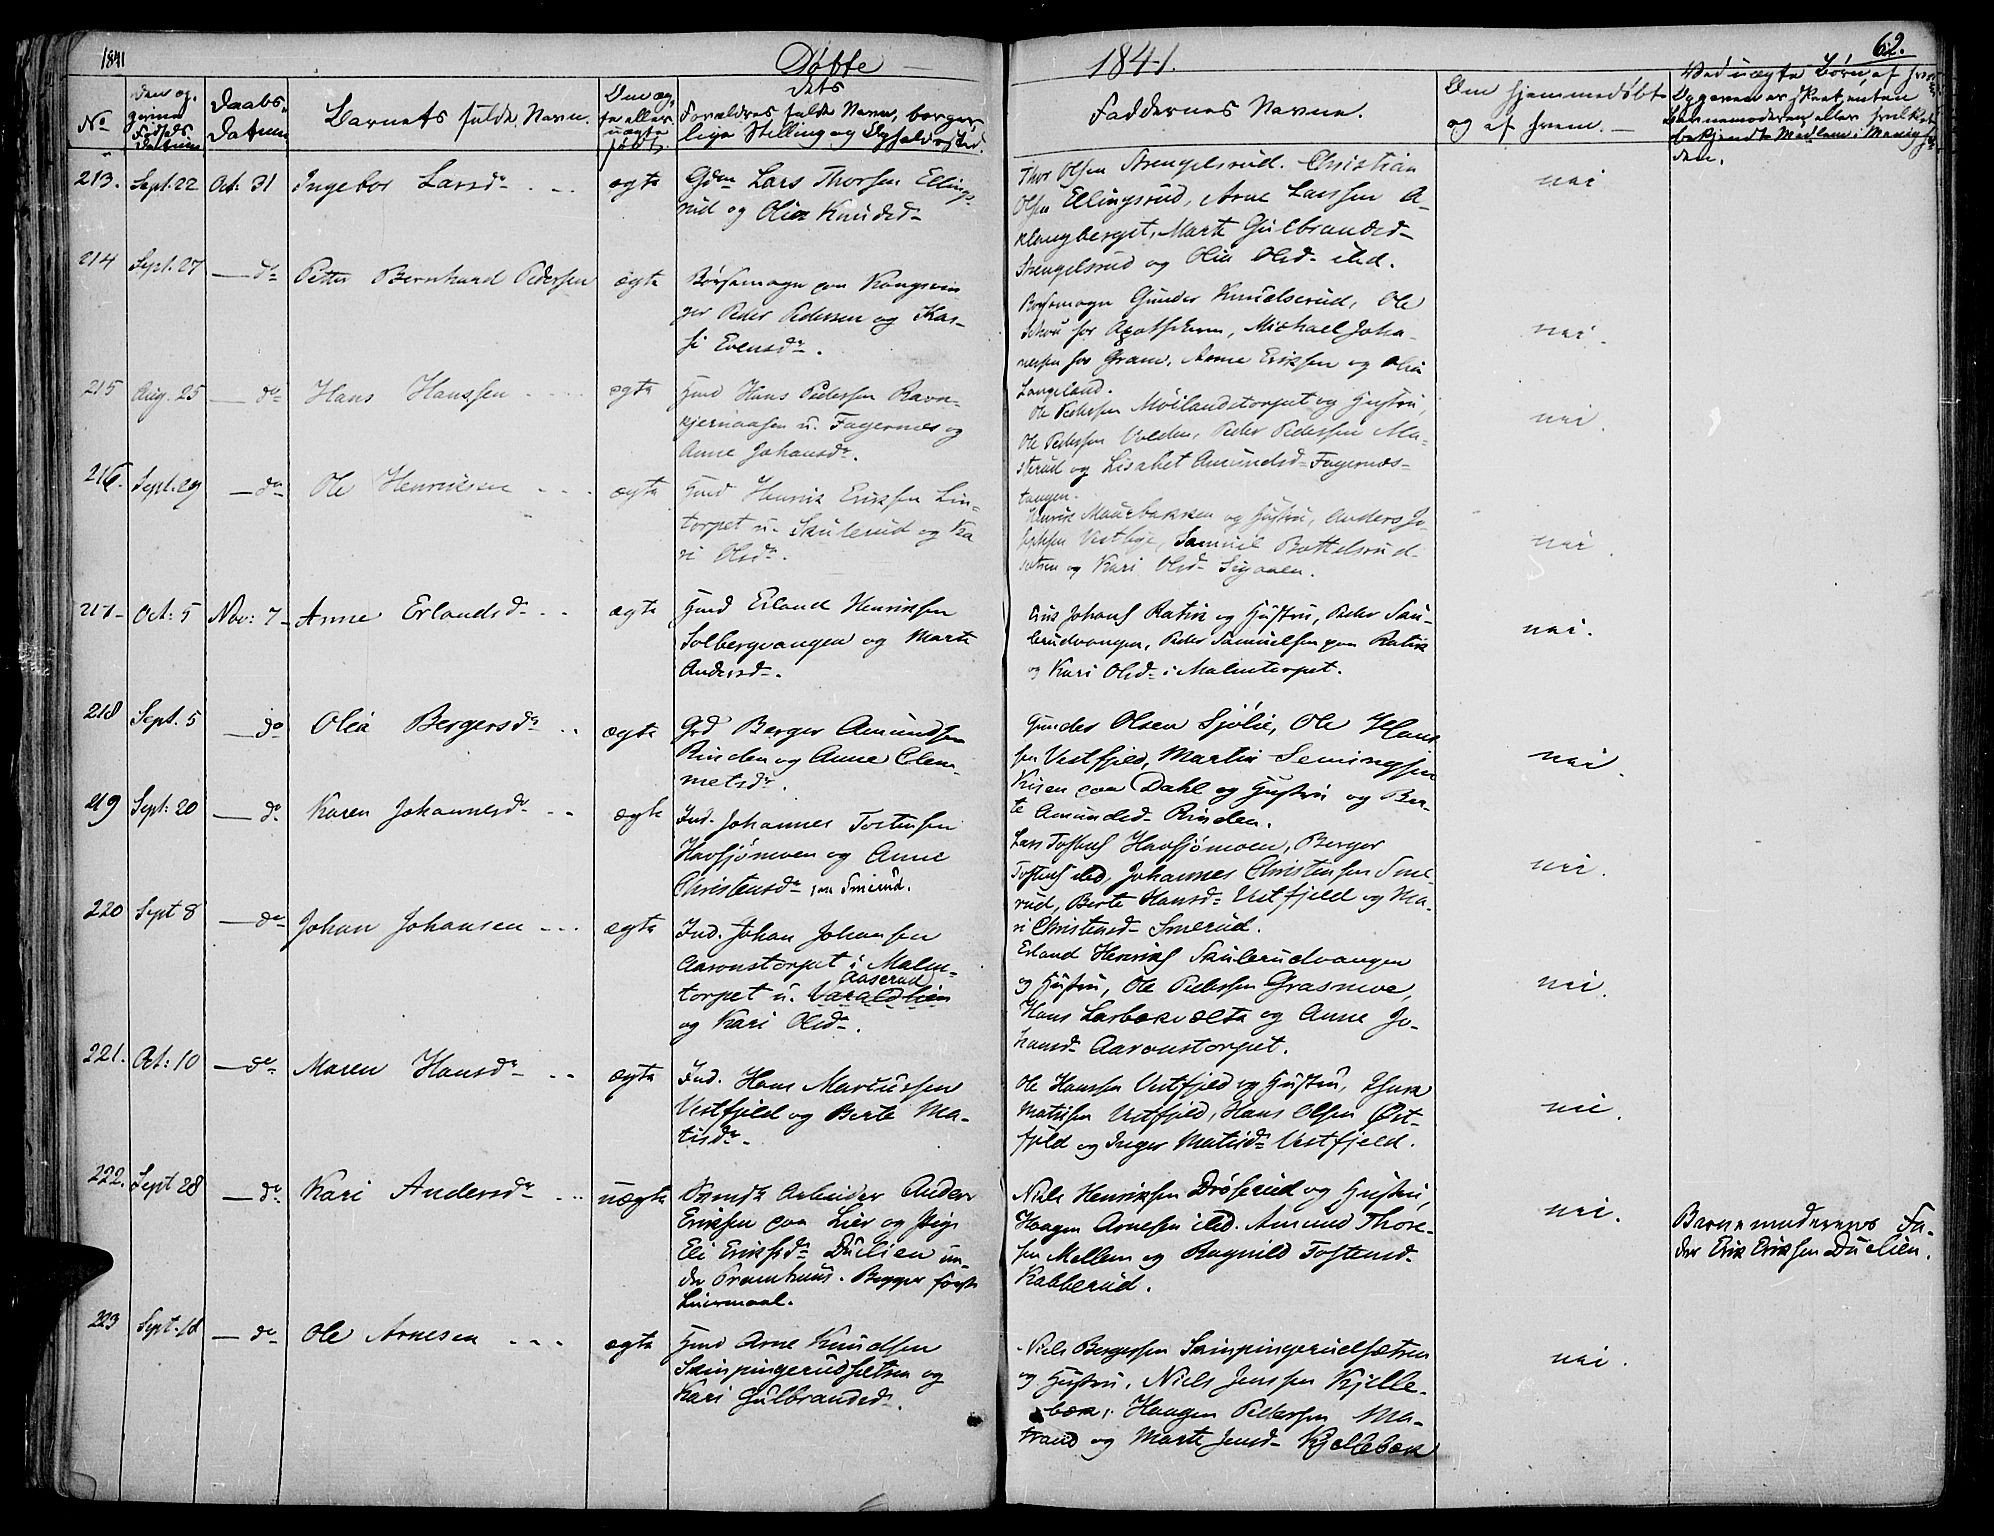 1841
Døbte
1841.
62.
No
Daabs-
Datum
Barnets fulde Navn.
Den æg-
te eller
uægte
født.
dets
Forældres fulde Navn, borger-
lige Stilling og Opholdssted.
Faddernes Navne.
Om hjemmedøbt
og af hvem. —
Ved uægte Børn, af hvem
Opgaven er skeet, enten
Barnemoderen eller hvilket
bekjendt Medlem i Menighe-
den.
213. Sept. 22 Oct: 31 Ingebor Larsdr - - ægte
Gdm Lars Thorsen Ellings-
rud og Olia Knudsd-
Thor Olsen Strengelsrud. Christian
Olsen Ellingsrud, Arne Larssen A-
klangberget, Marte Gulbrandsd-
Strengelsrud og Olia Olsd- ibd.
nei
214 Sept. 27 — do Petter Bernhard Pedersen ægte
Børsemager paa Kongsvin-
ger Peder Pedersen og Kar-
i Evensdr.
Børsemager Gunder Knudserud, Ole
for Apothekeren, Michael Joha-
nessen for Gram, Arne Eriksen og Olia
Langeland.
nei.
215 Aug. 25 — do Hans Hanssen - - ægte
Huusmd Hans Pedersen Ravn-
kjernaasen u. Fagernes og
Anne Johansdr.
Ole Pedersen Moilandstorpet og Hustru,
Ole Pedersen Volden, Peder Pedersen Ma-
sterud og Lisabet Amundsd- Fagernæs-
tangen.
nei.
216. Sept. 29 — do Ole Henriksen - - - ægte
Huusmd Henrik Eriksen Lin-
torpet u. Skulerud og Ka-
ri Olsdr.
Henrik Maurbakken og Hustru, Anders Jo-
sephsen Vestbye, Samuel Bottelsrud-
sætren og Kari Olsd-
nei.
217- Oct: 5 Nov: 7 - Anne Erlandsd- - - ægte
Huusmd Erland Henriksen
Solbergvangen og Marte
Andersd-.
Erik Johans Ratik og Hustru, Peder Sku-
lerudvangen, Peder Samuelsen paa Ratik
og Kari Olsd- i Malmtorpet.
nei.
218 Sept. 5 — do Olia Bergersdr - - ægte
Grd Berger Amundsen
Rinden og Anne Clem-
metsdr.
Gunder Olsen Sjølie, Ole Hans-
sen Vestfjeld, Martin Semingsen
Kusen paa Dahl og Hustru og Ber-
te Amundsd- Rinden.
nei.
219 Sept: 20 — do Karen Johannesdr - - ægte
Ind. Johannes Tostensen
Havsjømoen og Anne
Christensdr paa Smerud.
Lars Tostens Havsjømoen, Berger
Tostens ibd, Johannes Christensen Sme-
rud, Berte Hansd- Vestfjeld og Ma-
ri Christensd- Smerud.
nei.
220 Sept 8 — do Johan Johansen - - - ægte
Ind. Johan Johansen
Aaronstorpet i Malm-
Aaserud
torpet u. Varaldlien
og Kari Olsdr.
Erland Henriks Skulerudvangen
og Hustru, Ole Pedersen Grasmoe,
Hans Larbækvælta og Anne Jo-
hansd- Aaronstorpet.
nei.
221. Oct: 10 — do Maren Hansdr - - ægte
Ind. Hans Marcussen
Vestfjeld og Berte Ma-
tisdr.
Ole Hanssen Vestfjeld og Hustru,
Matissen Vestfjeld, Hans Olsen Øst-
fjeld og Inger Matisdr Vestfjeld.
nei.
222. Sept 28 — do Kari Andersdr - - uægte
Arbeider Anders
Eriksen paa Lier og Pige
Eli Eriksdr Duelien un-
der Pramhuus. Begges første
Leiermaal.
Niels Henriksen Drøserud og Hustru,
Haagen Arnesen ibd. Amund Thore-
sen Mellem og Ragnild Tostensd-
Kabberud.
nei.
Barnemoderens Fa-
der Erik Eriksen Duelien.
223 Sept. 18 — do Ole Arnesen - - - ægte
Huusmd Arne Knudsen
Skinpingerudsetren og
Kari Gulbrandsd-.
Niels Bergersen Skinpingerudsætren
og Hustru, Niels Jenssen Kjelle-
bæk, Haagen Pedersen Ma-
strand og Marte Jensd- Kjellebæk
nei.